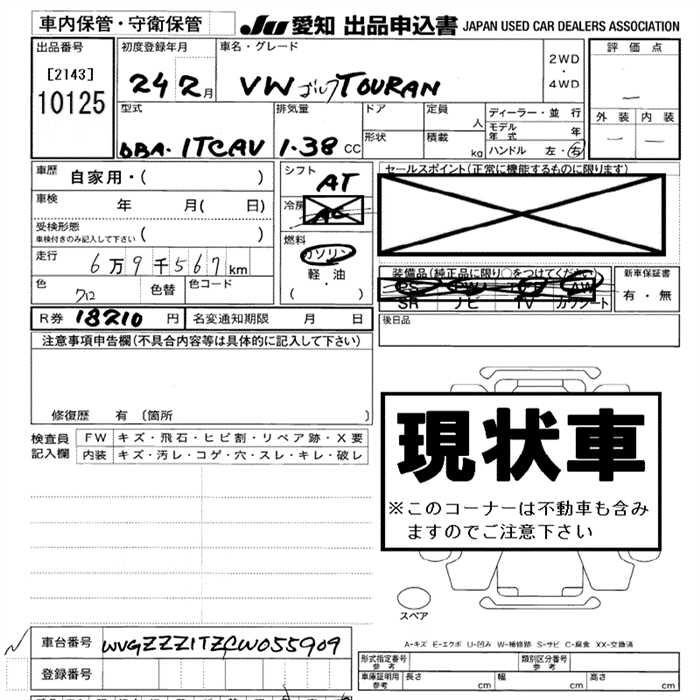 車内保管・守衛保管 JU 愛知 出品申込書 JAPAN USED CAR DEALERS ASSOCIATION
出品番号 初度登録年月 車名・グレード 評価点
[2143] 24 2月 VW ゴルフTOURAN 2WD・4WD
10125
型式 排気量 ドア 定員 人 ディーラー・並行 外装 内装
モデル年式 年
DBA-1TCAV 1.38 CC 形状 積載 kg ハンドル 左・右
車歴 自家用・( ) シフト AT セールスポイント(正常に機能するものに限ります)
車検 年 月( 日) 冷房 AC
受検形態 ( )
車検付きのみ記入して下さい
燃料 ガソリン
走行 6万9千567km 軽・油 装備品(純正品に限り○をつけてください) 新車保証書
・( ) PS PW AW 有・無
色 色替 色コード SR ナビ TV カワシート
R券 18210 円 名変通知期限 月 日 後日品
注意事項申告欄(不具合内容等は具体的に記入して下さい)
修復歴 有 〔箇所 〕
検査員 FW キズ・飛石・ヒビ割・リペア跡・X要
記入欄 内装 キズ・汚レ・コゲ・穴・スレ・キレ・破レ
現状車
※このコーナーは不動車も含み
ますのでご注意下さい
スペア
A-キズ E-エクボ U-凹み W-補修跡 S-サビ C-腐食 XX-交換済
車台番号 WVGZZZ1TZCW055909
形式指定番号 参考 類別区分番号 参考
登録番号 車庫証明用 参考 長さ cm 幅 cm 高さ cm